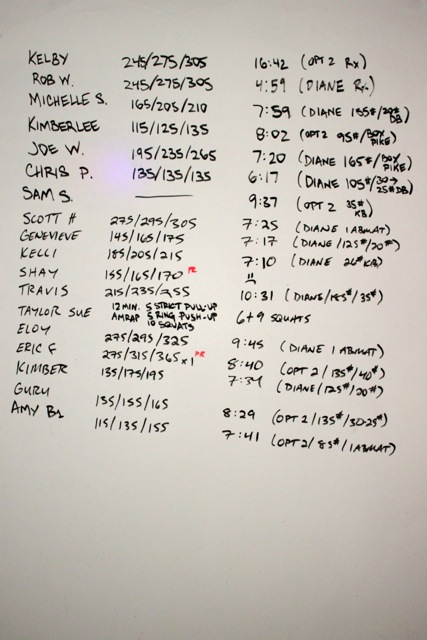 KELBY 245/275/305 16:42 (OPT 2 Rx)
ROB W. 245/275/305 4:59 (DIANE Rx)
MICHELLE S. 165/205/210 7:59 (DIANE 155#/20# DB)
KIMBERLEE 115/125/135 8:02 (OPT 2 95#/BOX PIKE)
JOE W. 195/235/265 7:20 (DIANE 165#/BOX PIKE)
CHRIS P. 135/135/135 6:17 (DIANE 105#/30→25# DB)
SAM S. —— 9:37 (OPT 2 35# KB)
SCOTT H 275/295/305 7:25 (DIANE 1 ABMAT)
GENEVIEVE 145/165/175 7:17 (DIANE/125#/20#)
KELLI 185/205/215 7:10 (DIANE 26# KB)
SHAY 155/165/170 PR
TRAVIS 215/235/255 10:31 (DIANE/185#/35#)
TAYLOR SUE 12 MIN. AMRAP 5 STRICT PULL-UP 5 RING PUSH-UP 10 SQUATS 6+9 SQUATS
ELOY 275/295/325 9:45 (DIANE 1 ABMAT)
ERIC F 275/315/365 x1 PR 8:40 (OPT 2/135#/40#)
KIMBER 135/175/195 7:34 (DIANE/125#/20#)
GURU 135/155/165 8:29 (OPT 2/135#/30-25#)
AMY B2 115/135/155 7:41 (OPT 2/83#/1 ABMAT)